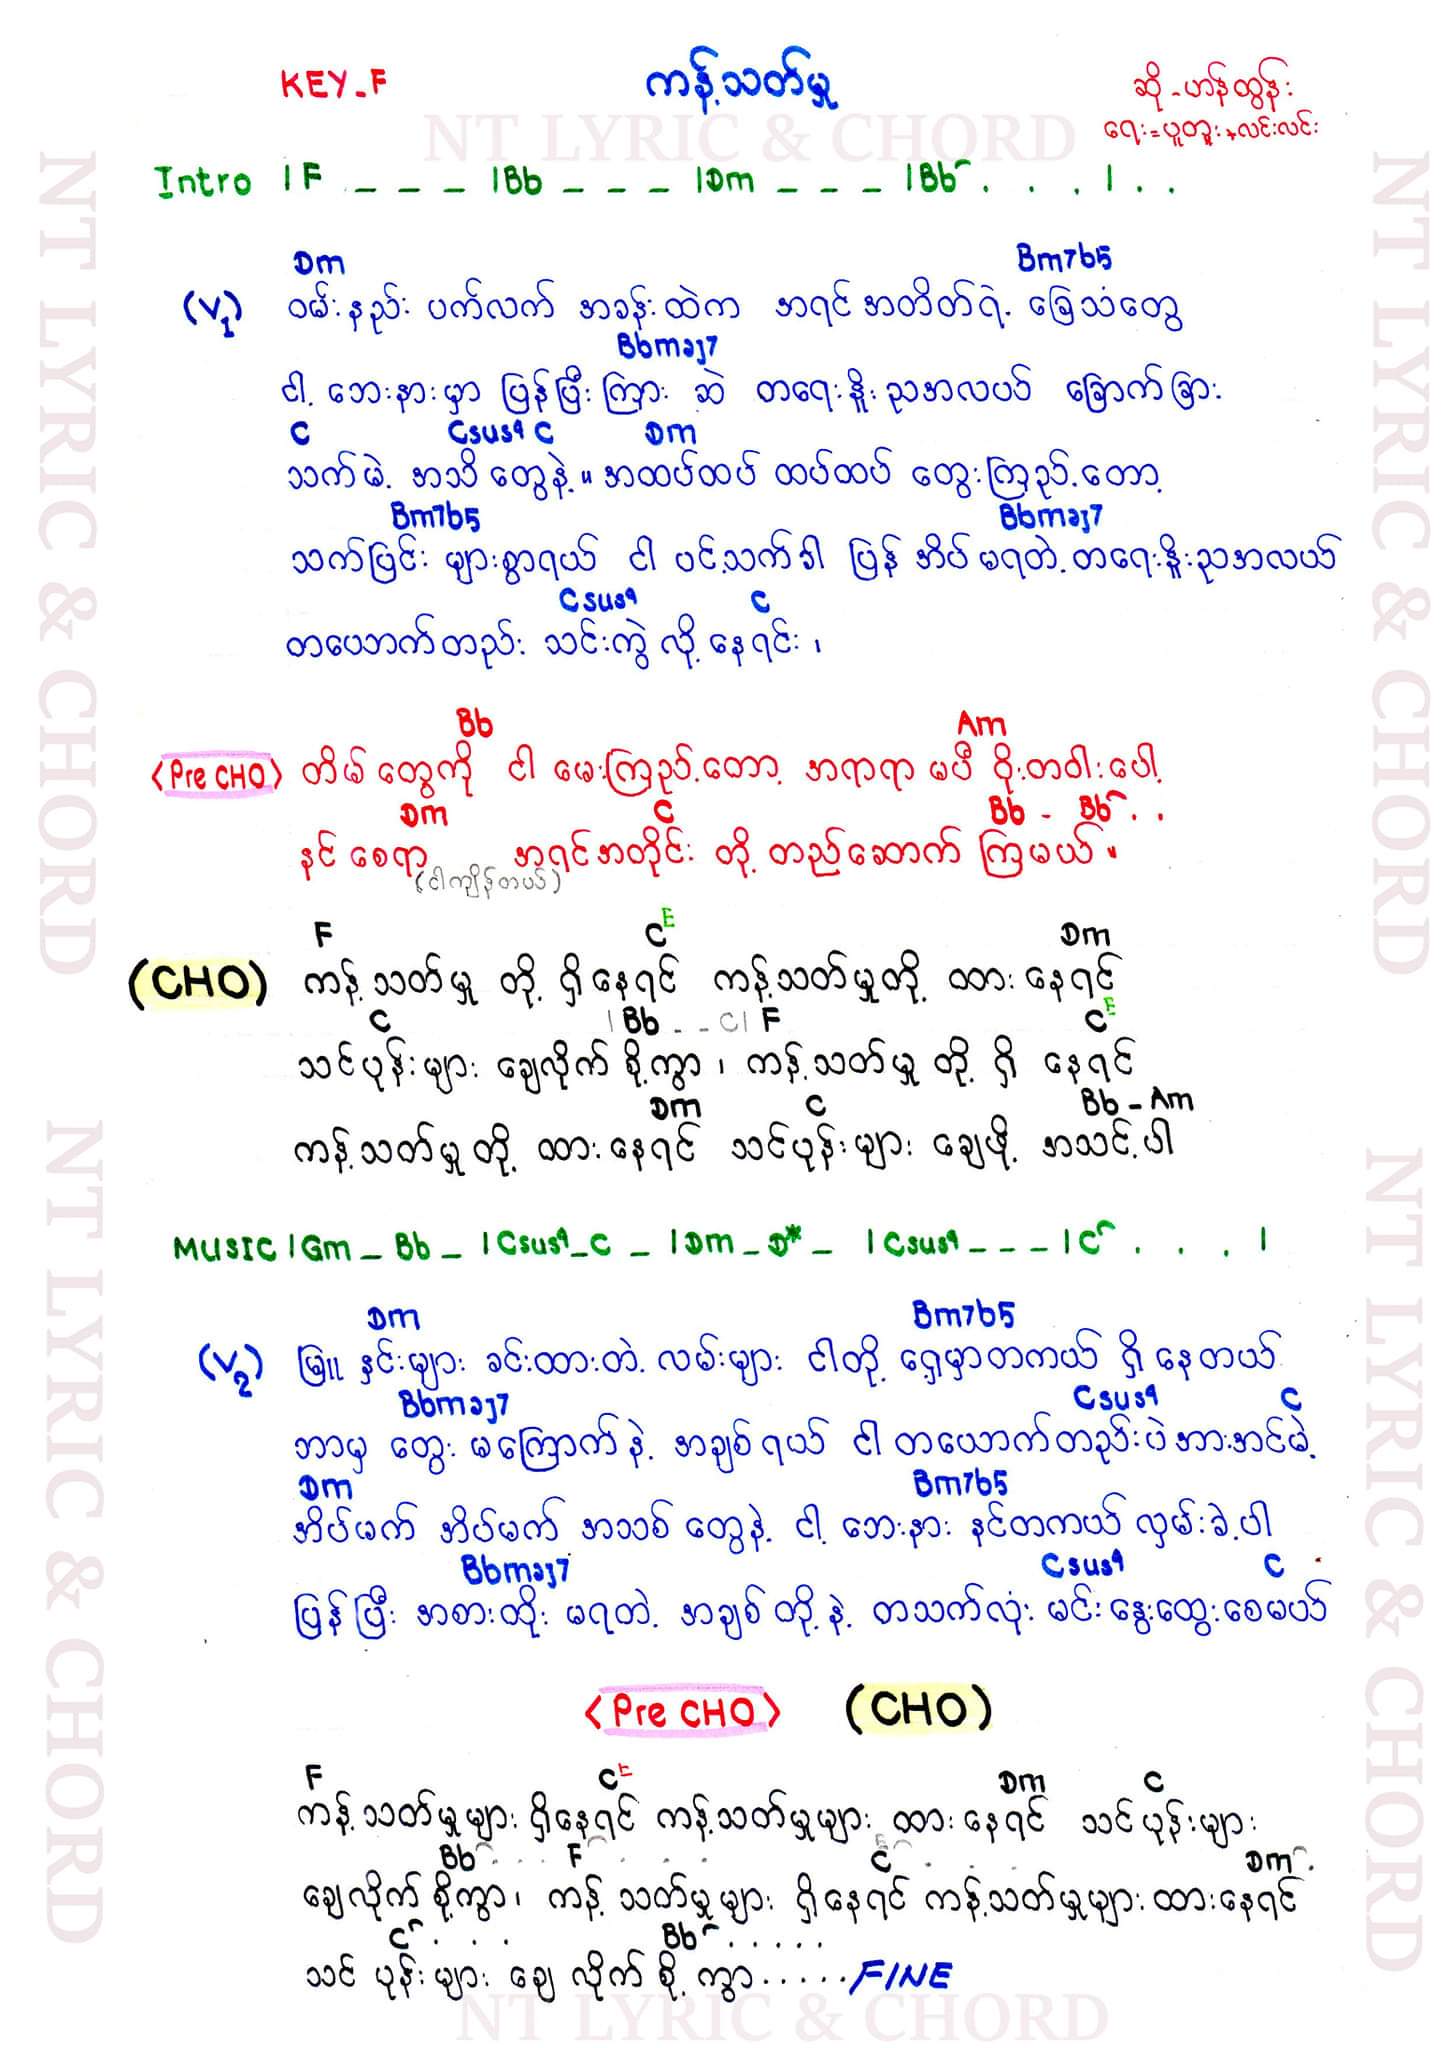 KEY-F
ကန့်သတ်မှု
ဆို - ဟန်ထွန်း
ရေး = ပူတူး + လင်းလင်း
NT LYRIC & CHORD
Intro | F _ _ _ | Bb _ _ _ | Dm _ _ _ | Bb . . . | . .
Dm Bm7b5
(V1) ဝမ်းနည်း ပက်လက် အခန်းထဲက အရင်အတိတ်ရဲ့ ခြေသံတွေ
Bbmaj7
ငါ့ ဘေးနားမှာ ပြန်ပြီးကြား ဆဲ တရေးနိုးညအလယ် ခြောက်ခြား
C Csus4 C Dm
သက်မဲ့ အသိတွေနဲ့။ အထပ်ထပ် ထပ်ထပ် တွေးကြည့်တော့
Bm7b5 Bbmaj7
သက်ပြင်း များစွာရယ် ငါ ပင့်သက်ခါ ပြန် အိပ် မရတဲ့ တရေးနိုးညအလယ်
Csus4 C
တယောက်တည်း သင်းကွဲလို့ နေရင်း ၊
Bb Am
<Pre CHO> တိမ်တွေကို ငါ မေးကြည့်တော့ အရာရာ မပီ ဝိုးတဝါးပေါ့
Dm C Bb - Bb . .
နင်စေရာ အရင်အတိုင်း တို့ တည်ဆောက် ကြမယ်။
(ငါကျိန်တယ်)
F C E Dm
(CHO) ကန့်သတ်မှု တို့ ရှိနေရင် ကန့်သတ်မှုတို့ ထားနေရင်
C | Bb _ _ C | F C E
သင်ပုန်းများ ချေလိုက်စို့ကွာ ၊ ကန့်သတ်မှု တို့ ရှိ နေရင်
Dm C Bb - Am
ကန့်သတ်မှုတို့ ထားနေရင် သင်ပုန်းများ ချေဖို့ အသင့်ပါ
MUSIC | Gm _ Bb _ | Csus4 _ C _ | Dm _ D* _ | Csus4 _ _ _ | C . . . |
Dm Bm7b5
(V2) မြူ နှင်းများ ခင်းထားတဲ့ လမ်းများ ငါတို့ ရှေ့မှာတကယ် ရှိနေတယ်
Bbmaj7 Csus4 C
ဘာမှ တွေး မကြောက်နဲ့ အချစ်ရယ် ငါ တယောက်တည်းပဲအားအင်မဲ့
Dm Bm7b5
အိပ်မက် အိပ်မက် အသစ်တွေနဲ့ ငါ့ ဘေးနား နင်တကယ် လှမ်းခဲ့ပါ
Bbmaj7 Csus4 C
ပြန်ပြီး အစားထိုး မရတဲ့ အချစ်တို့နဲ့ တသက်လုံး မင်းနွေးထွေးစေမယ်
<Pre CHO> (CHO)
F C E Dm C
ကန့်သတ်မှုများ ရှိနေရင် ကန့်သတ်မှုများ ထားနေရင် သင်ပုန်းများ
Bb . . . . F . . . C E . . . Dm .
ချေလိုက်စို့ကွာ ၊ ကန့်သတ်မှုများ ရှိနေရင် ကန့်သတ်မှုများ ထားနေရင်
C . . . Bb . . . . .
သင်ပုန်းများ ချေ လိုက် စို့ ကွာ ..... FINE
NT LYRIC & CHORD
NT LYRIC & CHORD
NT LYRIC & CHORD
NT LYRIC & CHORD
NT LYRIC & CHORD